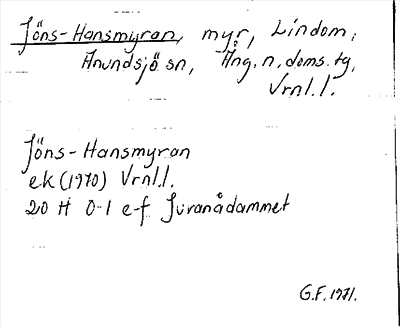 Jöns-Hansmyran, myr, Lindom,
Anundsjö sn, Ång. n. doms. tg,
Vrnl. l.
Jöns-Hansmyran
ek (1970) Vrnl. l.
20 H 0-1 e-f Juranådammet
G.F. 1971.